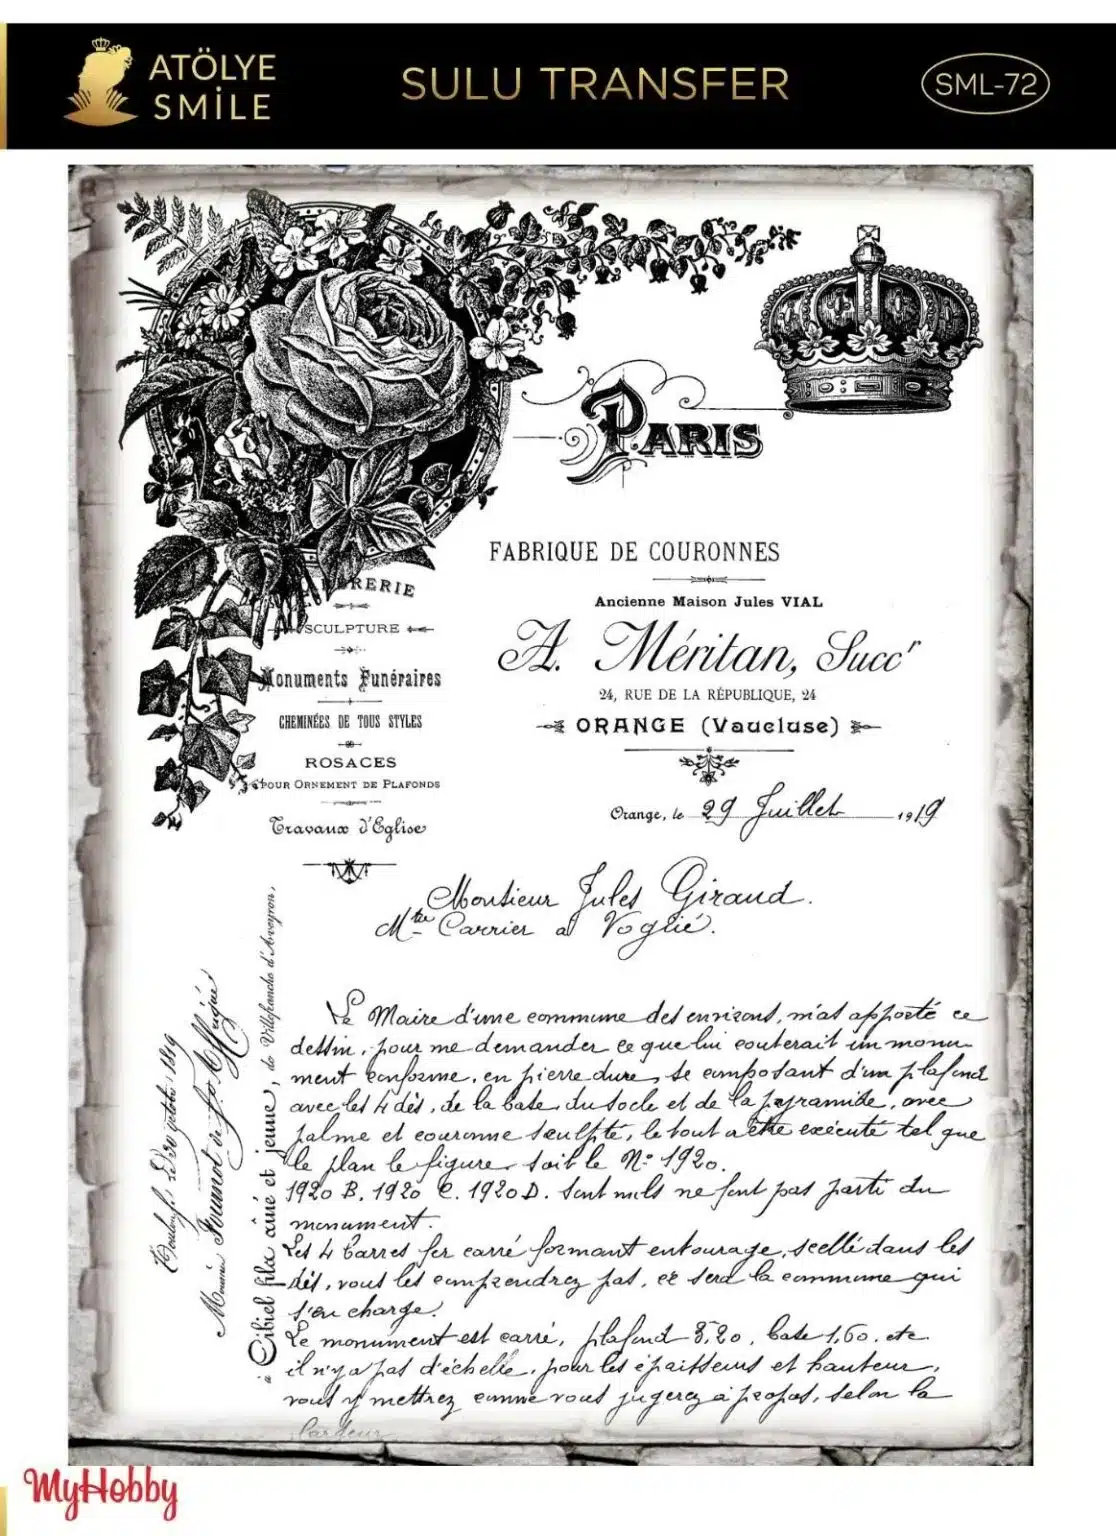 ATÖLYE
SMİLE
SULU TRANSFER
SML-72
PARIS
FABRIQUE DE COURONNES
Ancienne Maison Jules VIAL
A. Méritan, Succr
24, RUE DE LA RÉPUBLIQUE, 24
ORANGE (Vaucluse)
SCULPTURE
Monuments Funéraires
CHEMINÉES DE TOUS STYLES
ROSACES
POUR ORNEMENT DE PLAFONDS
Travaux d'Eglise
Orange, le 29 Juillet 1919
Monsieur Jules Giraud.
Mtre Carrier a Voglié.
Le Maire d'une commune des environs, m'as apporté ce
dessin, pour me demander ce que lui couterait un monu-
ment conforme, en pierre dure, se composant d'un plafond
avec les 4 dés, de la base, du socle et de la pyramide, avec
palme et couronne sculpté, le tout a être exécuté tel que
le plan le figure, soit le No 1920.
1920 B. 1920 C. 1920 D. ne font pas parti du
monument.
Les 4 barres fer carré formant entourage, scellé dans les
dés, vous les comprendrez pas, ce sera la commune qui
s'en charge.
Le monument est carré, plafond 3,20, base 1,60. etc
il n'y a pas d'échelle, pour les épaisseurs et hauteur,
vous y mettrez comme vous jugerez a propos, selon la
largeur
à Cibiel fils aîné et jeune, de Villefranche d'Aveyron,
MyHobby